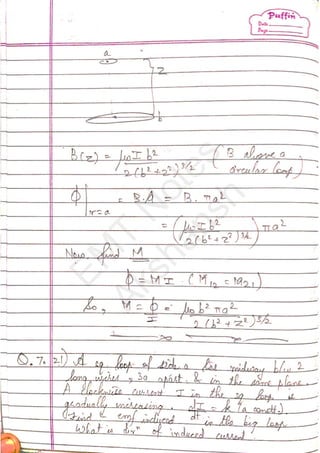 Puffin
Date
Page
a
z
b
B(z) = μ₀ I b² / 2(b²+z²)^3/2 ( B above a circular loop )
ϕ|r=a = B.A = B. πa²
= ( μ₀ I b² / 2(b²+z²)^3/2 ) πa²
Now, find M
ϕ = M I ( M12 = M21 )
So, M = ϕ/I = μ₀ b² πa² / 2 (b²+z²)^3/2
Q. 7.21) A sq loop of side a lies midway b/w 2
long wires, 3a apart, & in the same plane.
A clockwise current I in the sq loop is
gradually increasing. dI/dt = k (a constt.)
Find ε emf induced in the big loop
What is dirⁿ of induced current.
EMT Notes
Akshansh